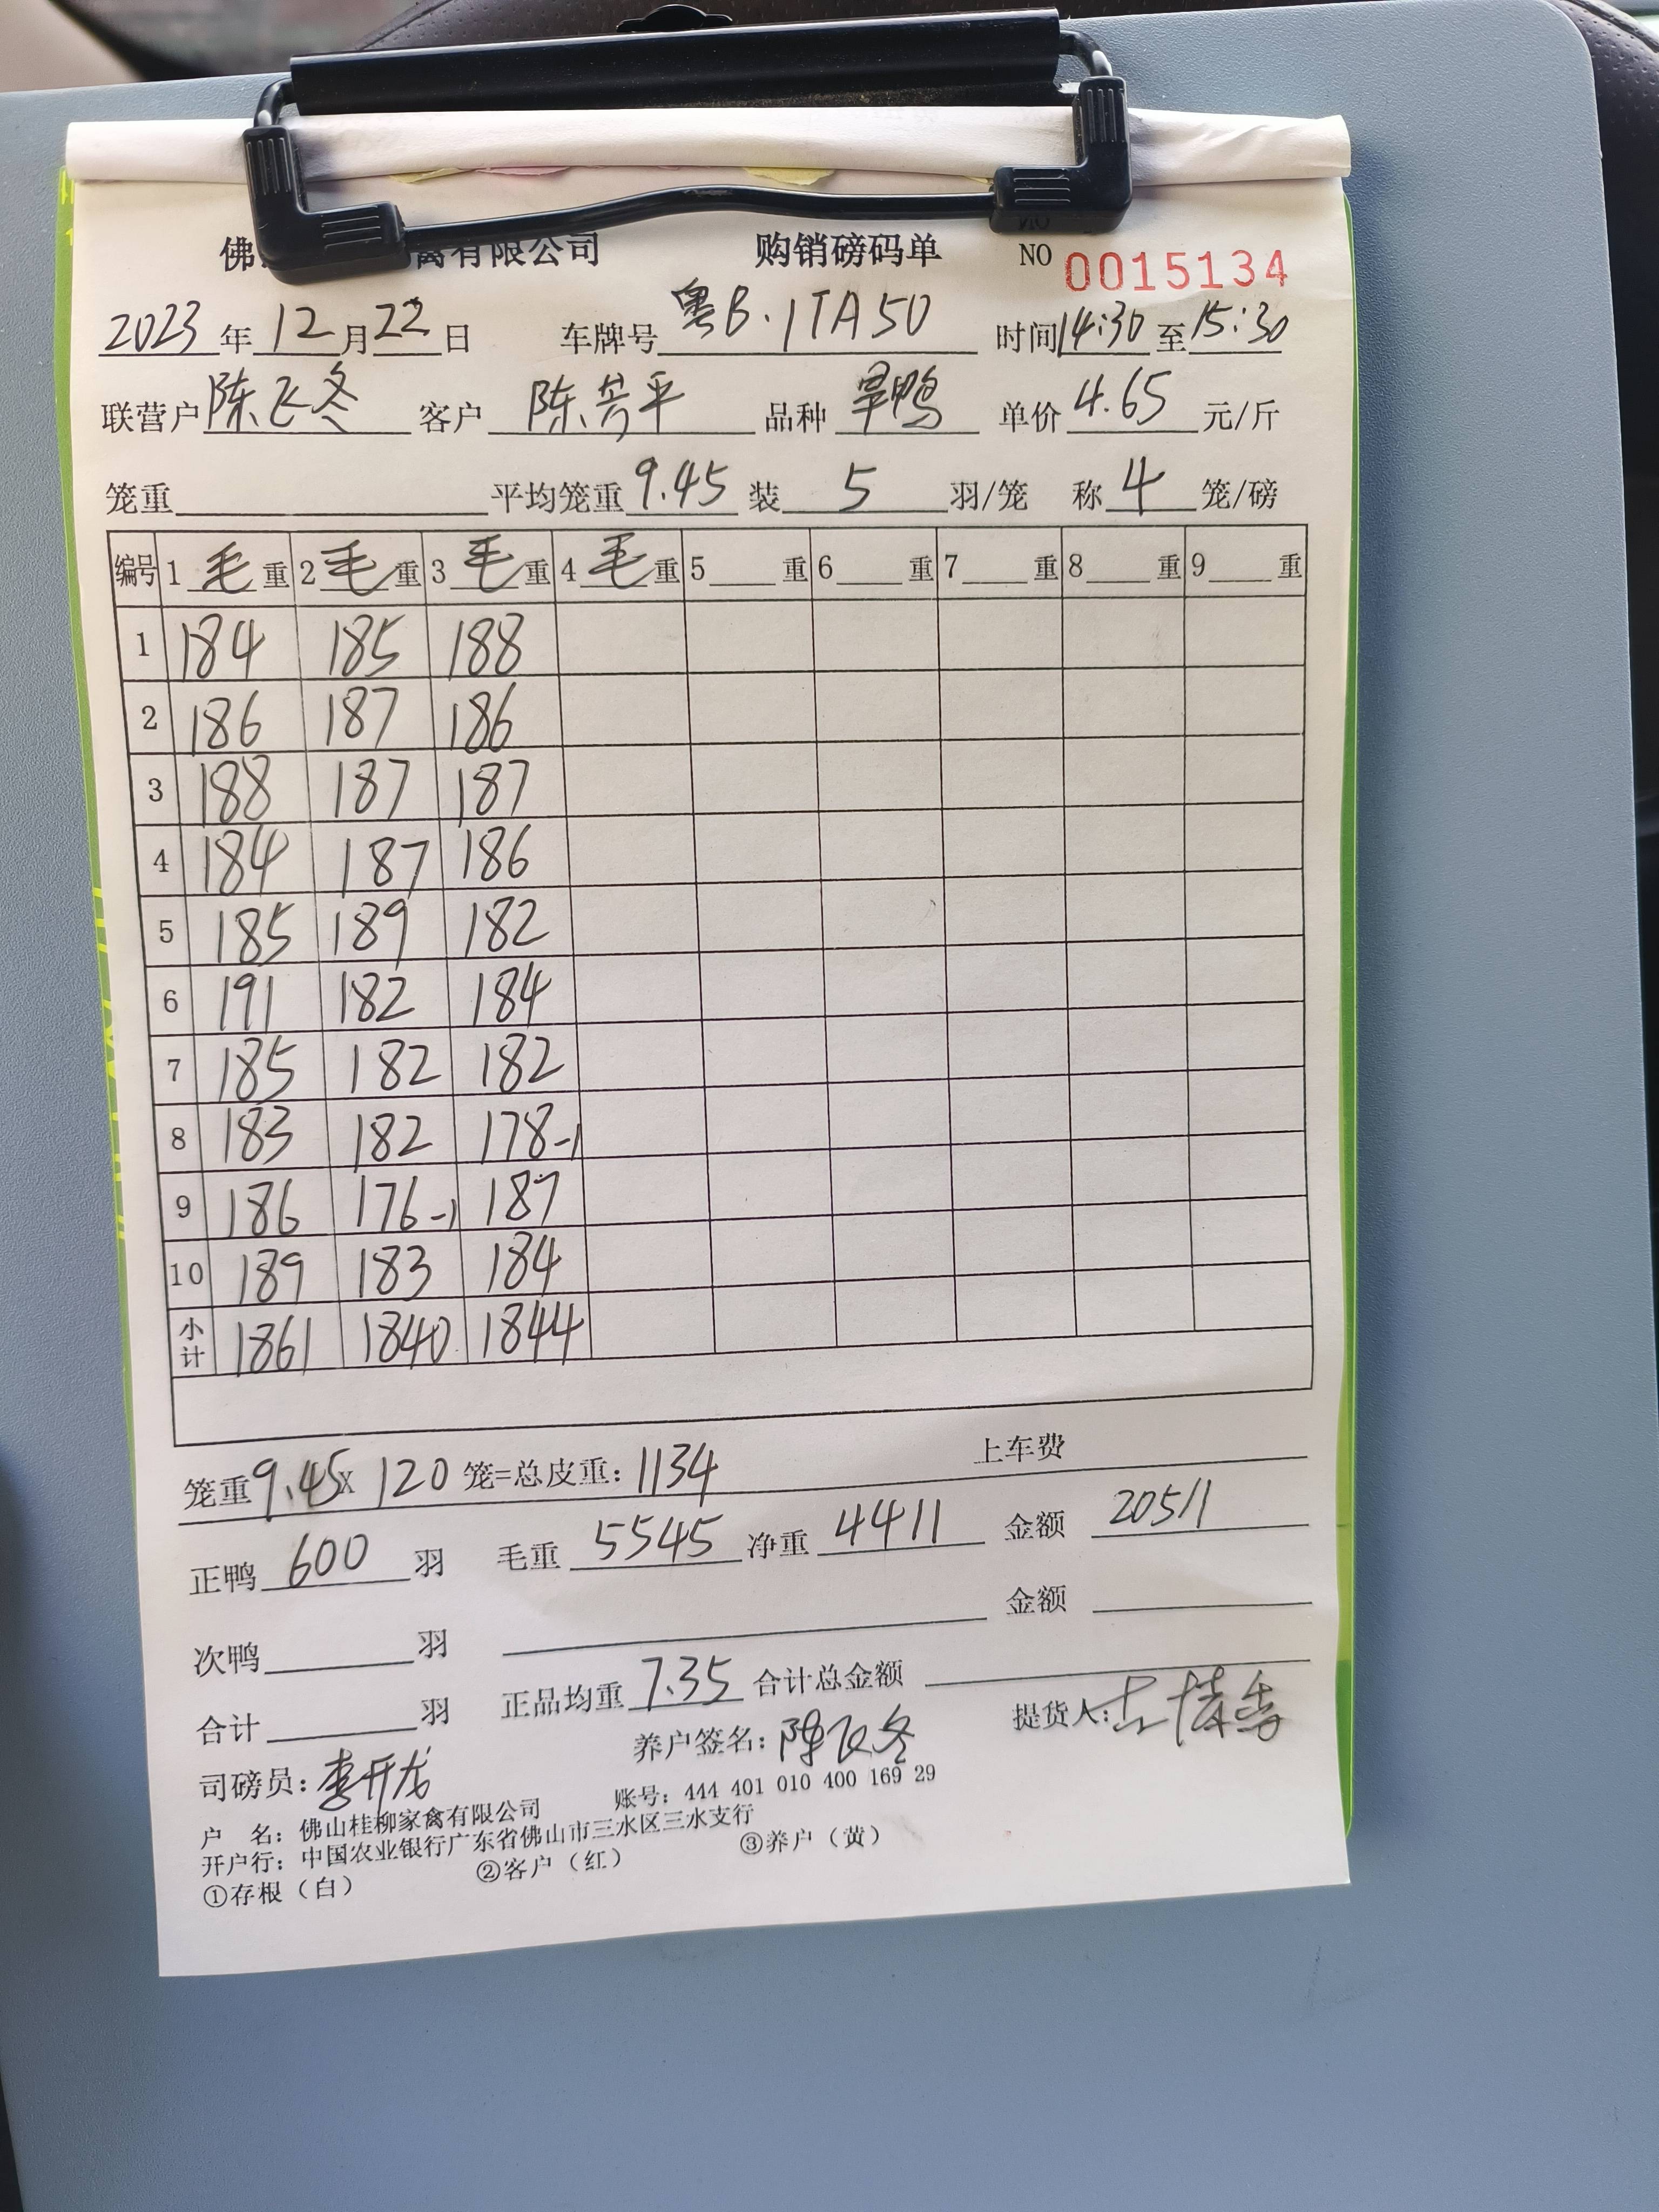 佛 禽有限公司 购销磅码单 NO 0015134
2023年12月22日 车牌号 粤B·1TA50 时间14:30至15:30
联营户 陈飞冬 客户 陈芳平 品种 旱鸭 单价 4.65 元/斤
笼重 平均笼重 9.45 装 5 羽/笼 称 4 笼/磅
编号 1 毛 重 2 毛 重 3 毛 重 4 毛 重 5 重 6 重 7 重 8 重 9 重
1 184 185 188
2 186 187 186
3 188 187 187
4 184 187 186
5 185 189 182
6 191 182 184
7 185 182 182
8 183 182 178-1
9 186 176-1 187
10 189 183 184
小计 1861 1840 1844
笼重 9.45 X 120 笼=总皮重: 1134 上车费
正鸭 600 羽 毛重 5545 净重 4411 金额 20511
次鸭 羽 金额
合计 羽 正品均重 7.35 合计总金额
司磅员: 李开龙 养户签名: 陈飞冬 提货人:
户 名: 佛山桂柳家禽有限公司 账号: 444 401 010 400 169 29
开户行: 中国农业银行广东省佛山市三水区三水支行
①存根（白） ②客户（红） ③养户（黄）